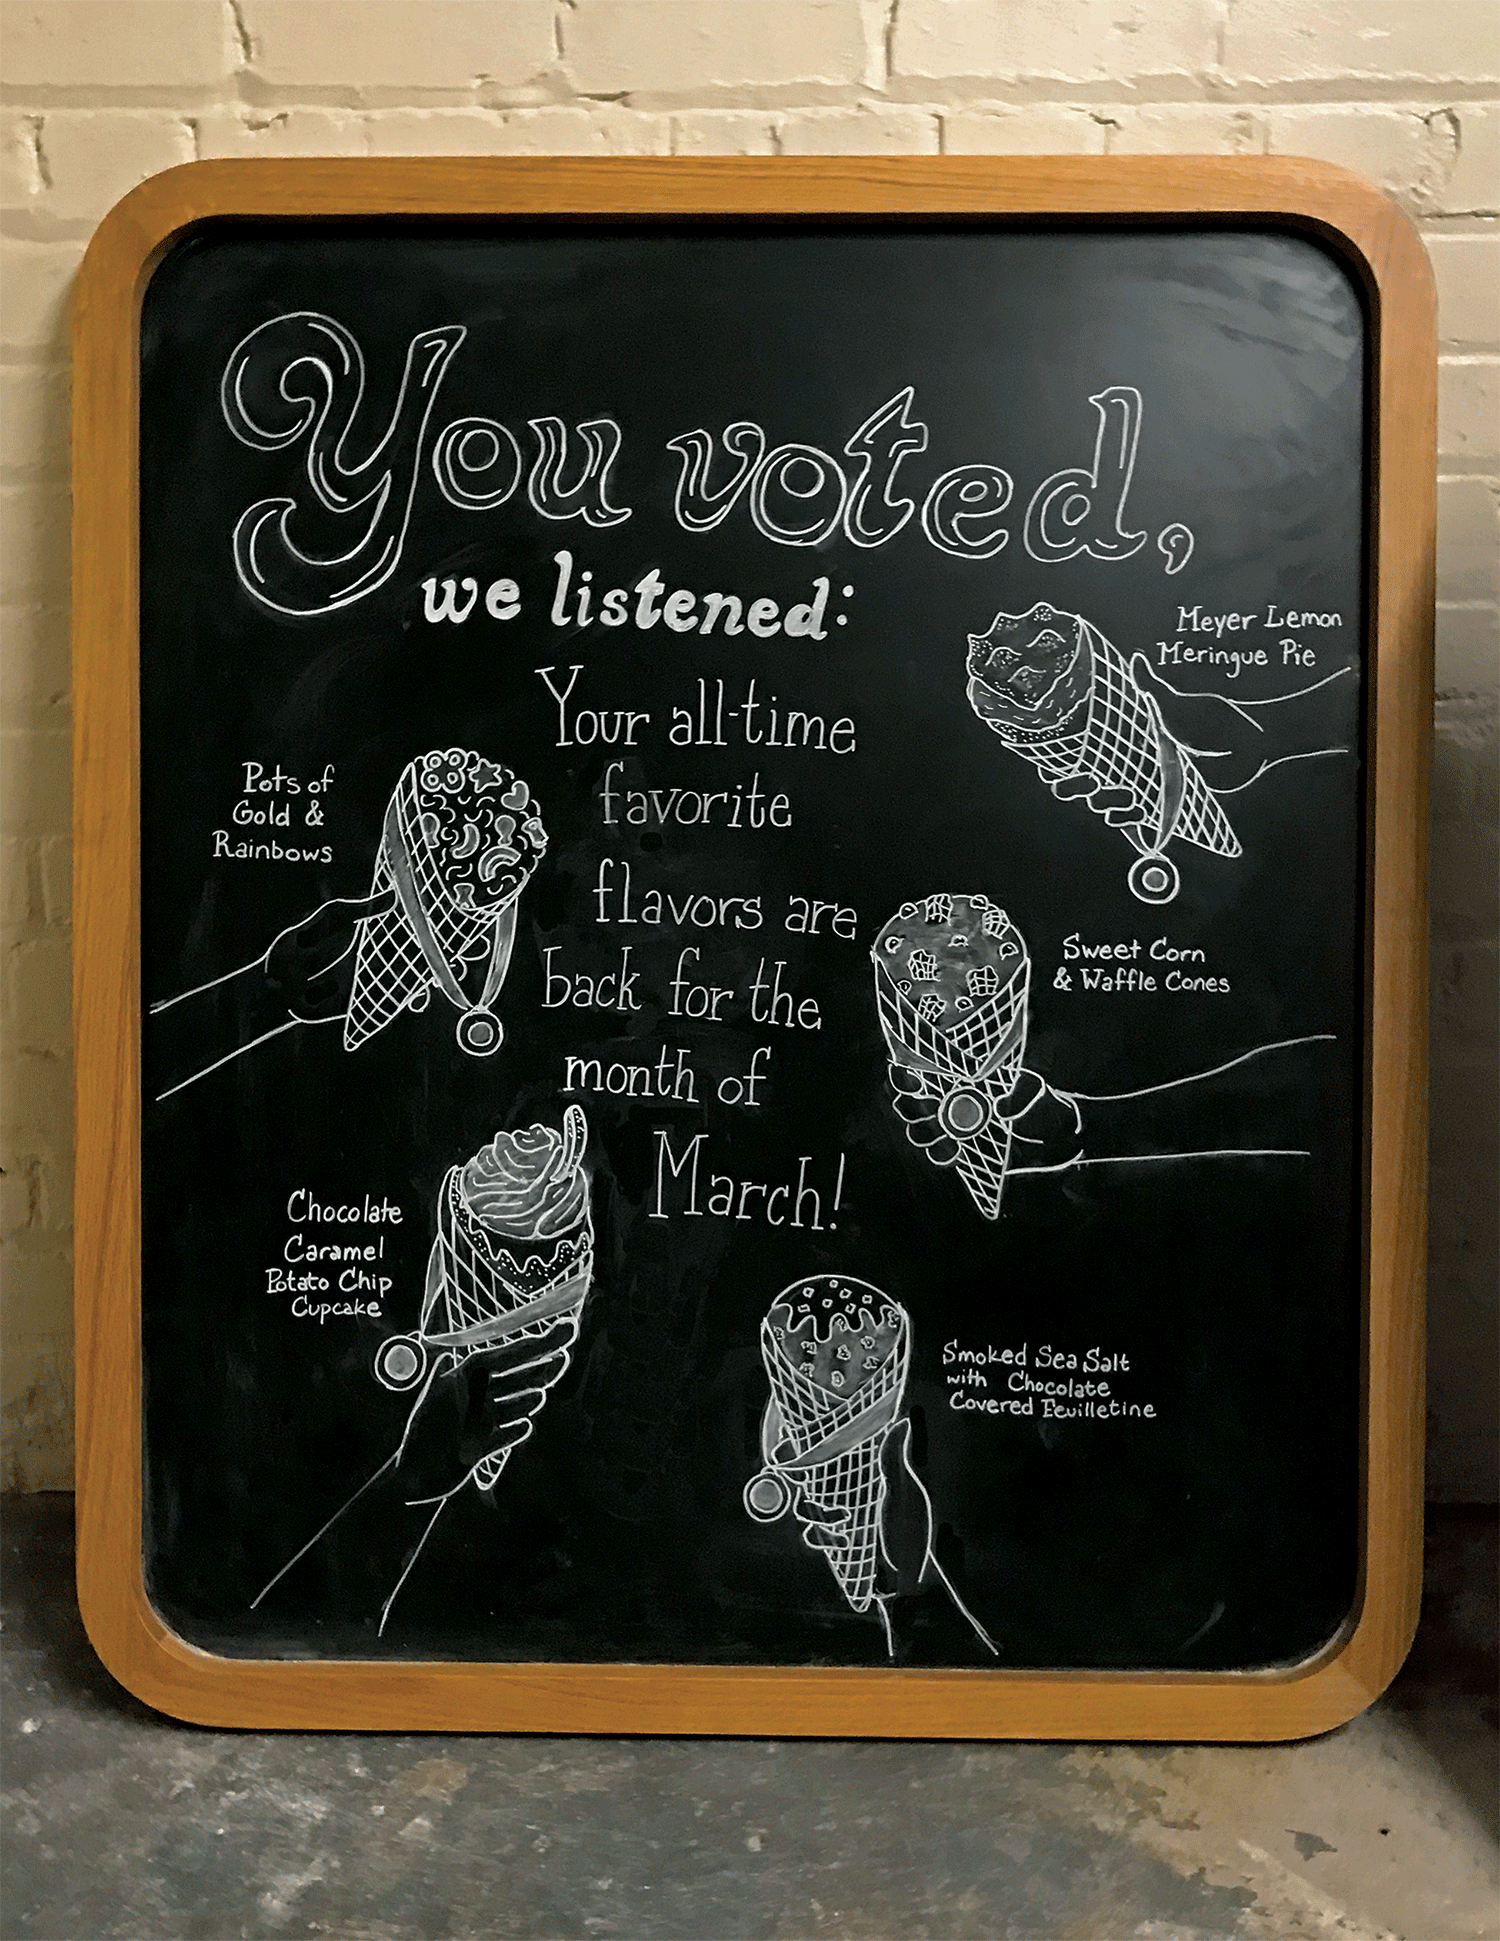 You voted,
we listened:
Your all-time
favorite
flavors are
back for the
month of
March!
Meyer Lemon
Meringue Pie
Pots of
Gold &
Rainbows
Sweet Corn
& Waffle Cones
Chocolate
Caramel
Potato Chip
Cupcake
Smoked Sea Salt
with Chocolate
Covered Feuilletine